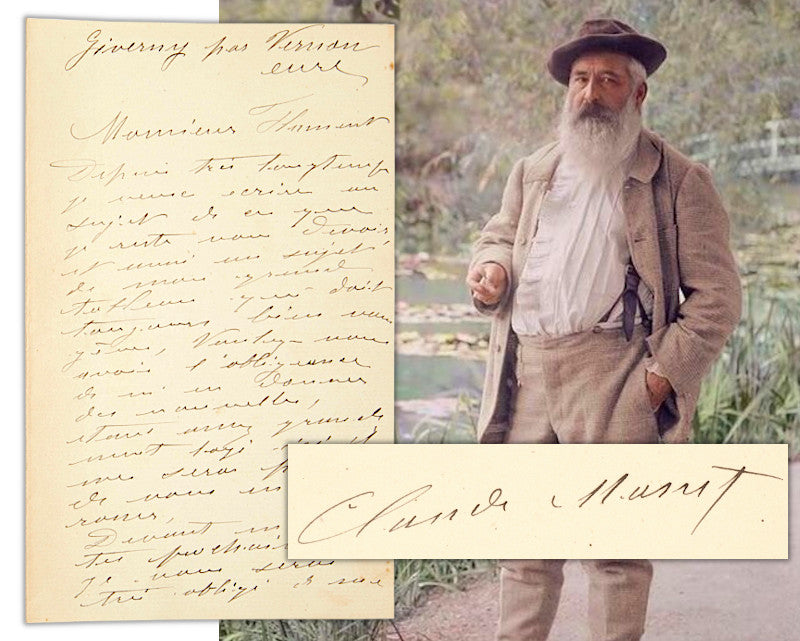 Giverny par Vernon
eure
Monsieur Flament
Depuis très longtemps
je veux écrire au
sujet de ce que
je reste vous devoir
et aussi au sujet
de mon grand
tableau qui doit
toujours bien vous
gêner, Voulez-vous
avoir l'obligeance
de m'en donner
des nouvelles,
étant assez grande
ment logé
me serai
de vous en
Devant
je vous serais
très obligé de me
Claude Monet